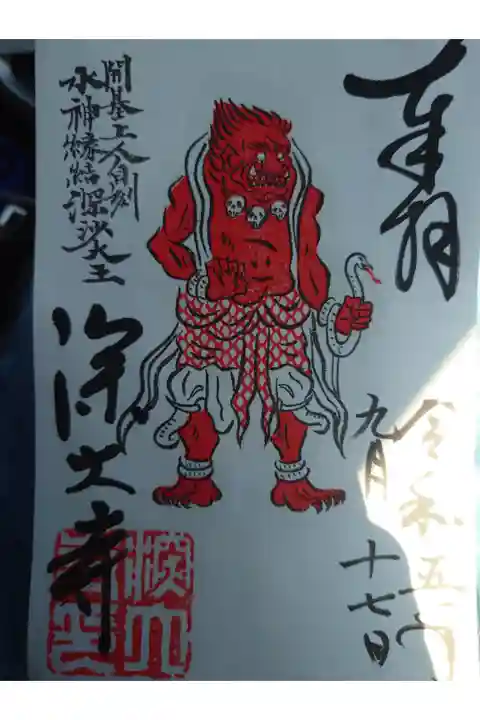 奉拝
令和五年
九月
十七日
開基上人自刻
水神縁結深沙大王
深大寺